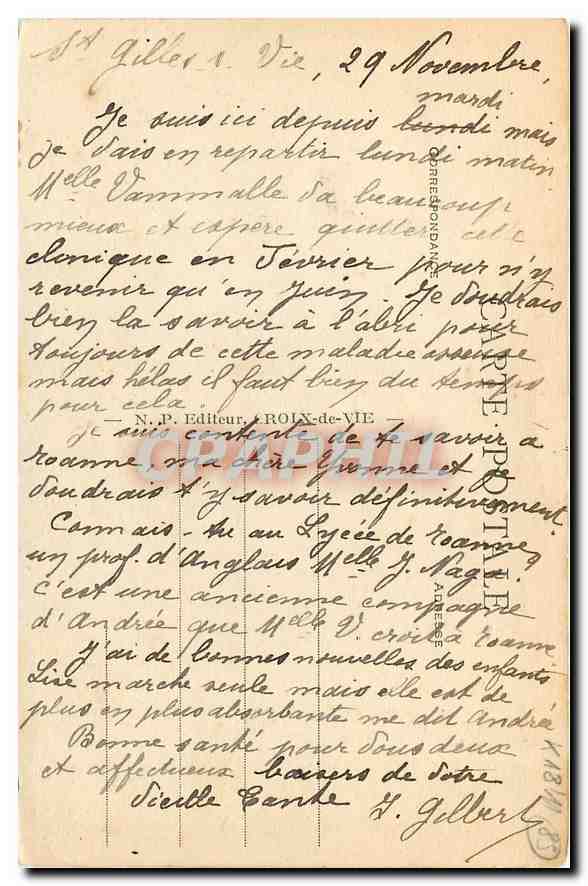 St Gilles s. Vie, 29 Novembre,
mardi
Je suis ici depuis lundi mais
je dois en repartir lundi matin
Melle Vammalle va beaucoup
mieux et espère quitter cette
clinique en Février pour n'y
revenir qu'en Juin. Je voudrais
bien la savoir à l'abri pour
toujours de cette maladie osseuse
mais hélas il faut bien du temps
pour cela.
Je suis contente de te savoir à
Roanne, ma chère Yvonne et je
voudrais t'y savoir définitivement.
Connais-tu au Lycée de Roanne,
un prof. d'Anglais Melle J. Naga.
C'est une ancienne compagne
d'Andrée que Melle V. croit à Roanne.
J'ai de bonnes nouvelles des enfants
Lise marche seule mais elle est de
plus en plus absorbante me dit Andrée
Bonne santé pour vous deux
et affectueux baisers de votre
vieille Tante J. Gilbert
— N. P. Editeur, CROIX-de-VIE —
CARTE POSTALE
CORRESPONDANCE
ADRESSE
CPAPHIL